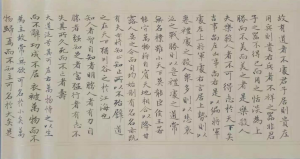 故有道者不處君子居則貴左
用兵則貴右兵者不祥之器非君
子之器不得已而用之恬淡為上
勝而不美而美之者是樂殺人
夫樂殺人者不可得志於天下矣
吉事尚左凶事尚右偏將軍
處左上將軍處右言居上勢則以
喪禮處之殺人眾多則以悲哀
泣之戰勝則以喪禮處之道常
無名樸雖小天下不敢臣王侯若
能守萬物將自賓天地相合以降甘
露人莫之令而自均始制有名名亦既
有天亦將知止知止所以不殆譬道
之在天下猶川谷之於江海也
知人者智自知者明勝人者有力自
勝者強知足者富強行者有志不
失其所者久死而不亡者壽
大道汎兮其可左右萬物恃之以生
而不辭功成不居衣被萬物而不
為主故常無欲可名於小矣萬
物歸焉而不為主可名於大矣是